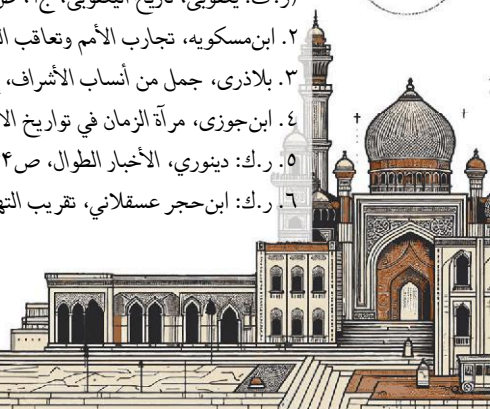 ر.ک: یعقوبی، تاریخ الیعقوبی، ج
۲. ابن‌مسکویه، تجارب الأمم وتعاقب
۳. بلاذری، جمل من أنساب الأشراف،
٤. ابن‌جوزی، مرآة الزمان في تواریخ
۵. ر.ک: دینوري، الأخبار الطوال، ص
٦. ر.ک: ابن‌حجر عسقلاني، تقریب